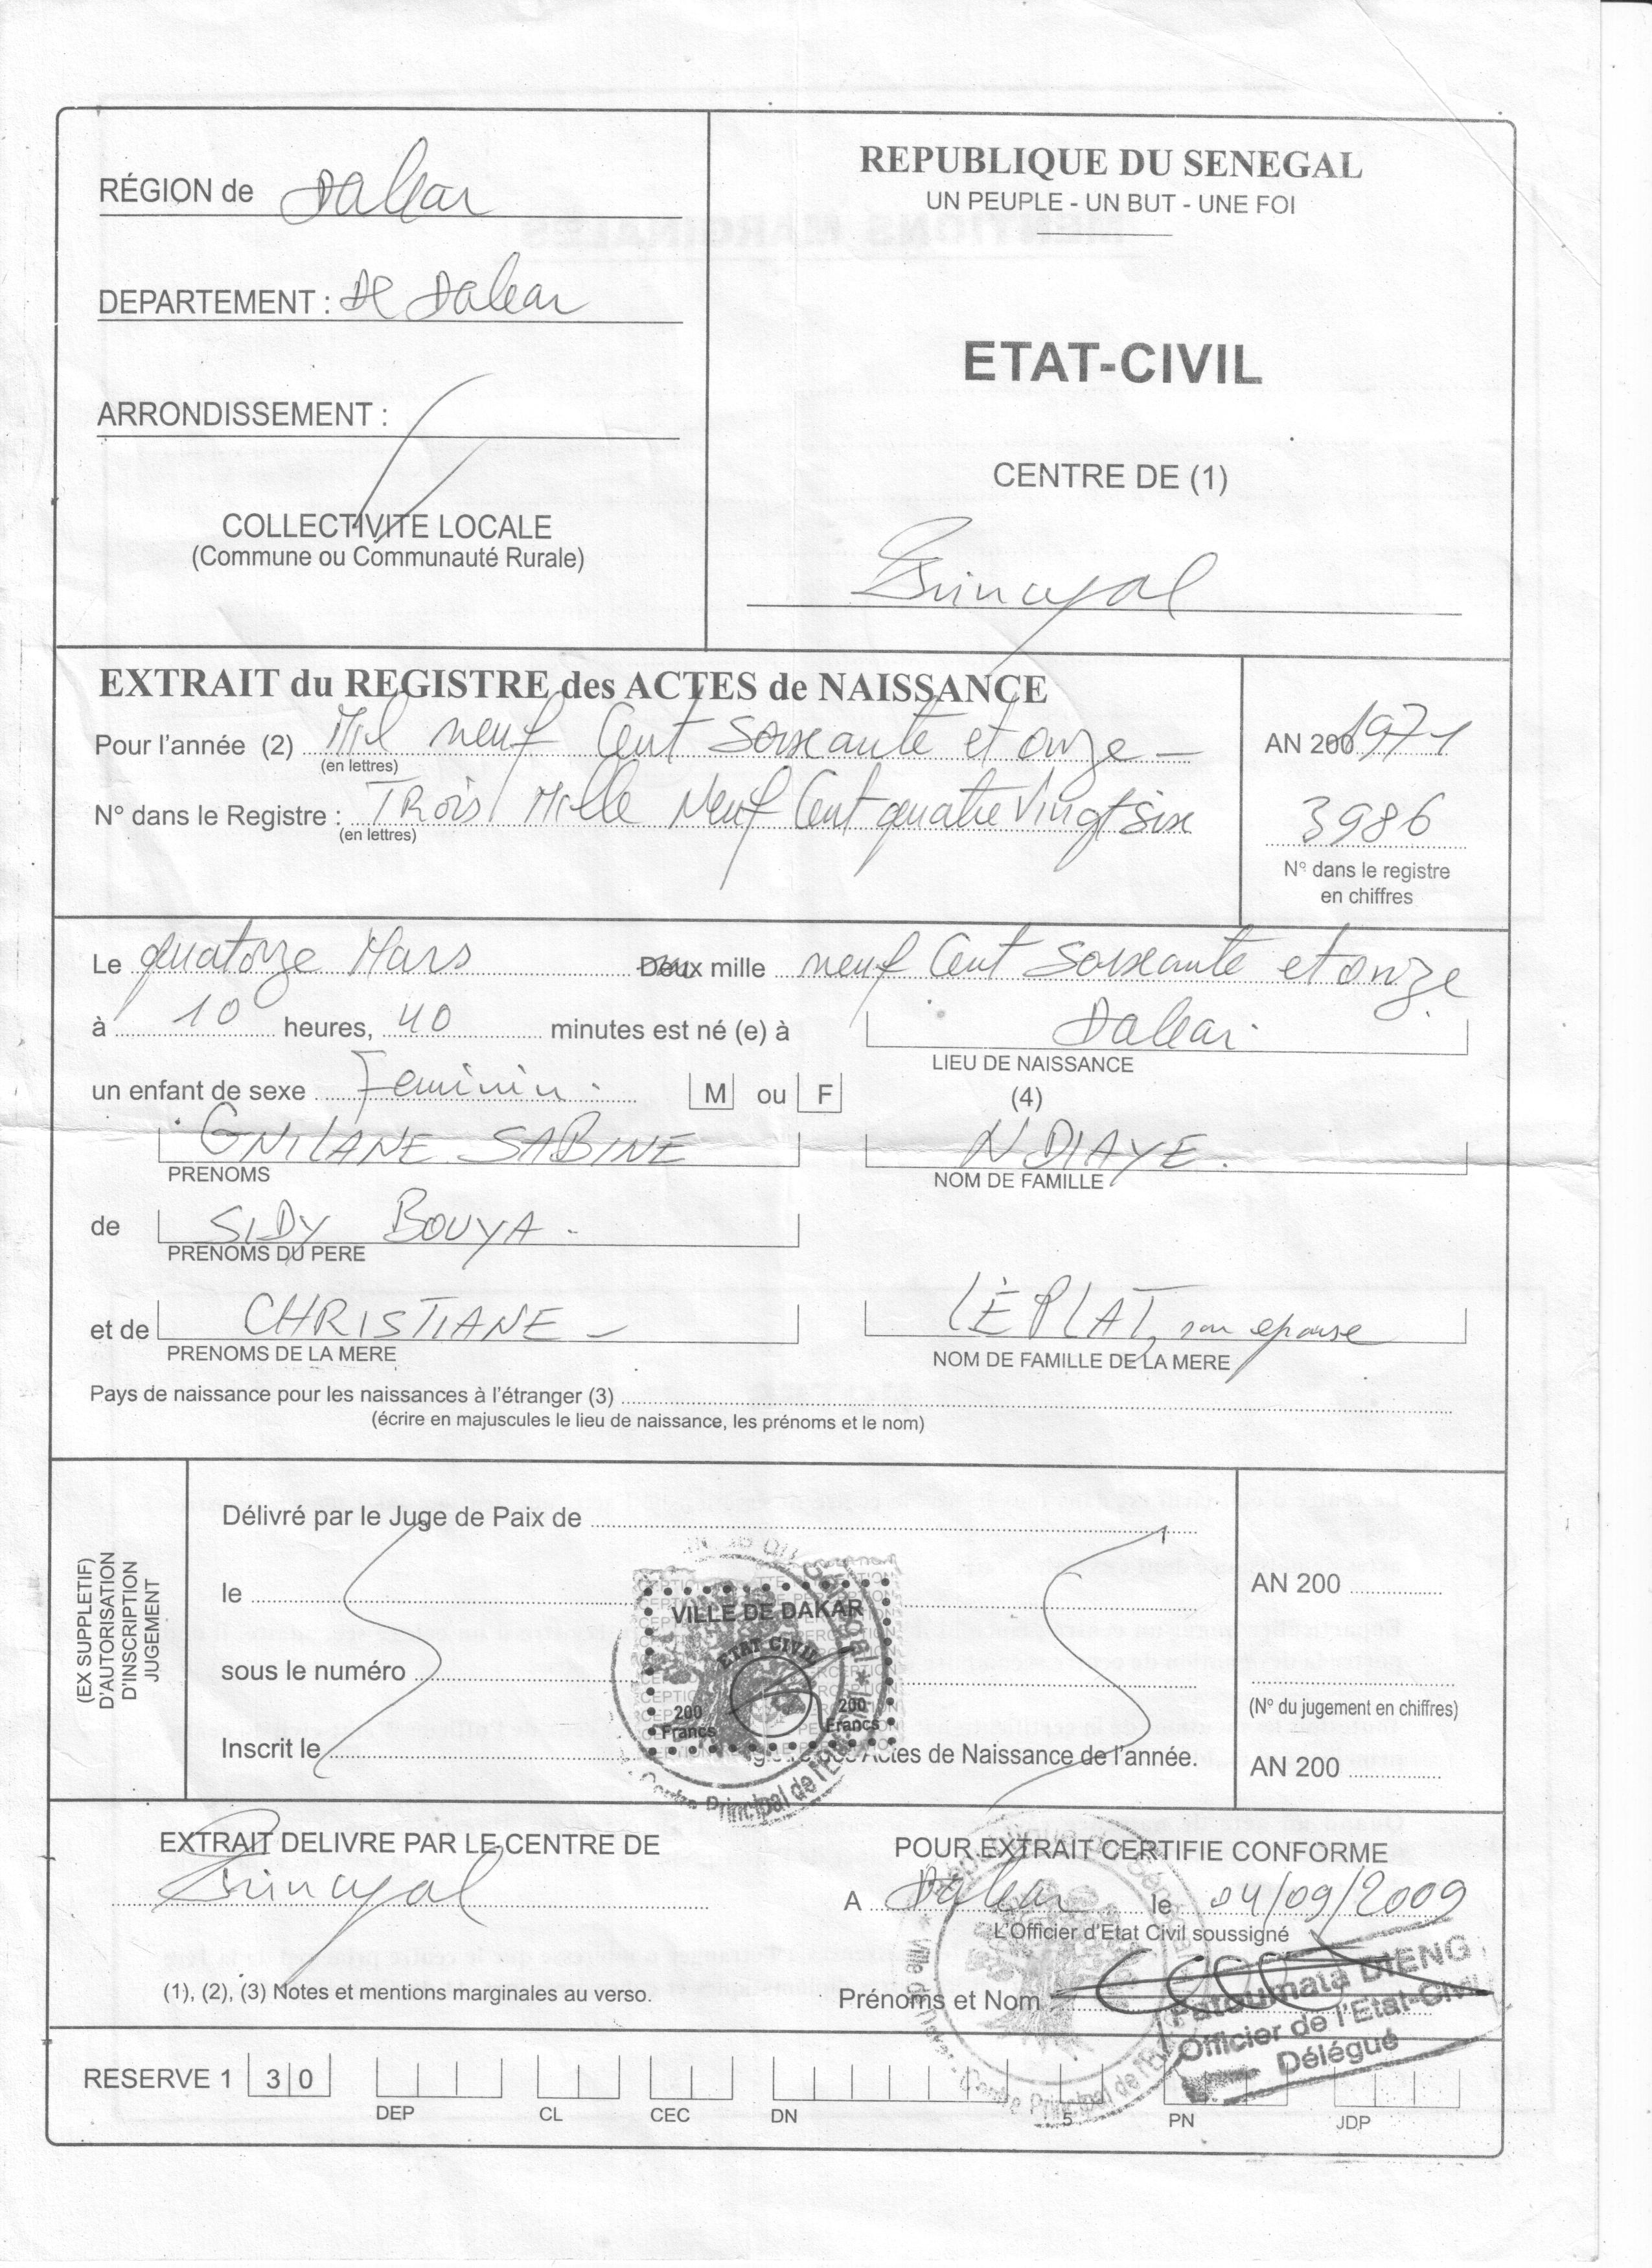 RÉGION de Dakar
DEPARTEMENT : De Dakar
ARRONDISSEMENT :
COLLECTIVITE LOCALE
(Commune ou Communauté Rurale)
REPUBLIQUE DU SENEGAL
UN PEUPLE - UN BUT - UNE FOI
ETAT-CIVIL
CENTRE DE (1)
Principal
EXTRAIT du REGISTRE des ACTES de NAISSANCE
Pour l'année (2) Mil neuf Cent Soixante et onze
(en lettres)
N° dans le Registre : Trois Mille Neuf Cent quatre Vingt Six
(en lettres)
AN 200 1971
3986
N° dans le registre
en chiffres
Le quatorze Mars Deux mille neuf Cent Soixante et onze
à 10 heures, 40 minutes est né (e) à Dakar
LIEU DE NAISSANCE
un enfant de sexe Feminin M ou F (4)
GNILANE SABINE N'DIAYE
PRENOMS NOM DE FAMILLE
de SIDY BOUYA
PRENOMS DU PERE
et de CHRISTIANE LÉPLAT, son epouse
PRENOMS DE LA MERE NOM DE FAMILLE DE LA MERE
Pays de naissance pour les naissances à l'étranger (3)
(écrire en majuscules le lieu de naissance, les prénoms et le nom)
(EX SUPPLETIF)
D'AUTORISATION
D'INSCRIPTION
JUGEMENT
Délivré par le Juge de Paix de
le
sous le numéro
Inscrit le Actes de Naissance de l'année.
VILLE DE DAKAR
ETAT CIVIL
200 Francs 200 Francs
Centre Principal de l'Etat
AN 200
(N° du jugement en chiffres)
AN 200
EXTRAIT DELIVRE PAR LE CENTRE DE
Principal
(1), (2), (3) Notes et mentions marginales au verso.
POUR EXTRAIT CERTIFIE CONFORME
A Dakar le 04/09/2009
L'Officier d'Etat Civil soussigné
Prénoms et Nom
Fatoumata DIENG
Officier de l'Etat-Civil
Délégué
RESERVE 1 3 0
DEP CL CEC DN 5 PN JDP